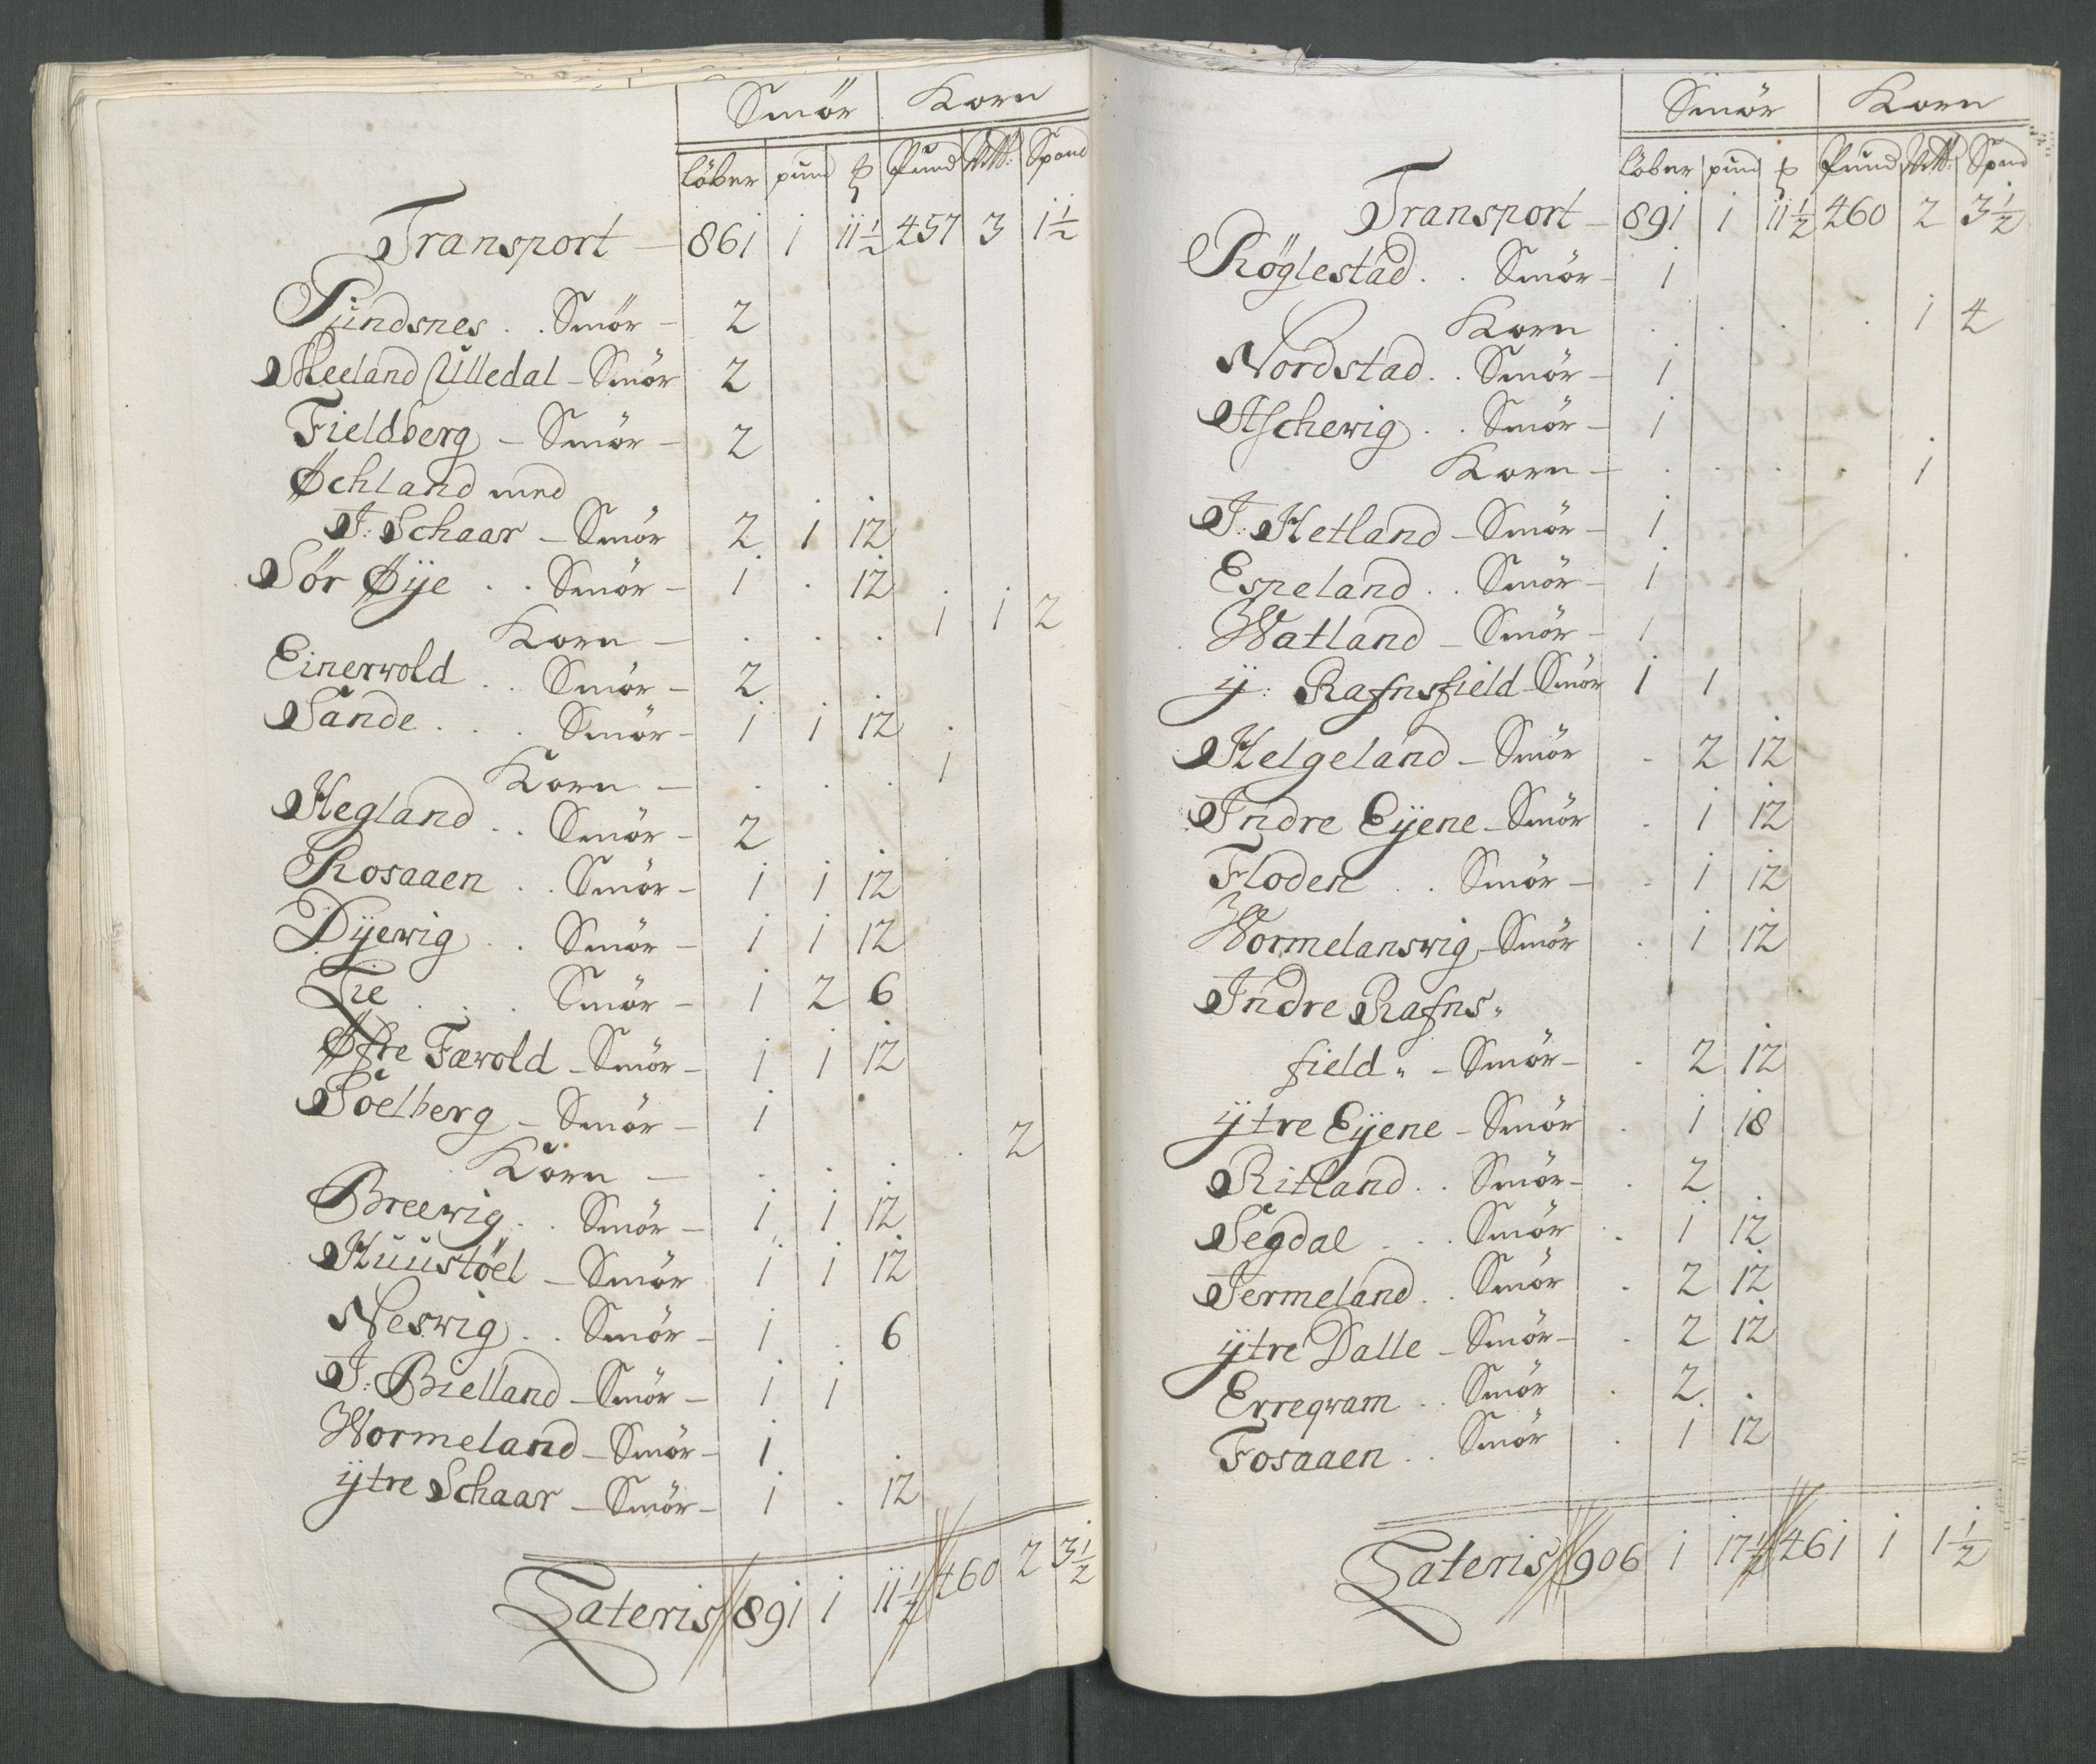 Smör Korn
löber pund ℔ Pund Vtt: Spand
Transport — 861 1 11½ 457 3 1½
Pundsnes . . Smör — 2
Meeland Ulledal — Smör 2
Fieldberg — Smör — 2
Øchland med
J: Schaar — Smör 2 1 12
Sör Øÿe . . Smör — 1 . 12
Korn — . . . 1 1 2
Einerwold . . Smör — 2
Sande . . . Smör — 1 1 12
Korn — . . . 1
Hegland . . Smör — 2
Rosaaen . . Smör — 1 1 12
Dÿewig . . Smör — 1 1 12
Lie . . . Smör — 1 2 6
Øfre Færold — Smör — 1 1 12
Soelberg — Smör — 1
Korn — . . . . 2
Breewig . . Smör — 1 1 12
Huustöel — Smör 1 1 12
Neswig . . Smör — 1 . 6
J: Bielland — Smör — 1 1
Wormeland — Smör — 1
ÿtre Schaar — Smör — 1 . 12
Lateris 891 1 11½ 460 2 3½
Smör Korn
löber pund ℔ Pund Vtt: Spand
Transport — 891 1 11½ 460 2 3½
Röglestad . . Smör — 1
Korn . . . . 1 4
Nordstad . . Smör — 1
Aschewig . . Smör — 1
Korn — . . . . 1
J: Hetland — Smör — 1
Espeland . . Smör — 1
Watland — Smör — 1
ÿ: Rafnsfield — Smör 1 1
Helgeland — Smör . 2 12
Indre Eÿene — Smör . 1 12
Floden . . Smör — . 1 12
Wormelanswig — Smör . 1 12
Indre Rafns„
field „ — Smör — . 2 12
ÿtre Eÿene — Smör . 1 18
Ritland . . Smör — . 2
Segdal . . . Smör . 1 12
Jermeland . . Smör . 2 12
ÿtre Dalle — Smör — . 2 12
Erreqvam . . Smör . 2 .
Fosaaen . . Smör . 1 12
Lateris 906 1 17½ 461 1 1½